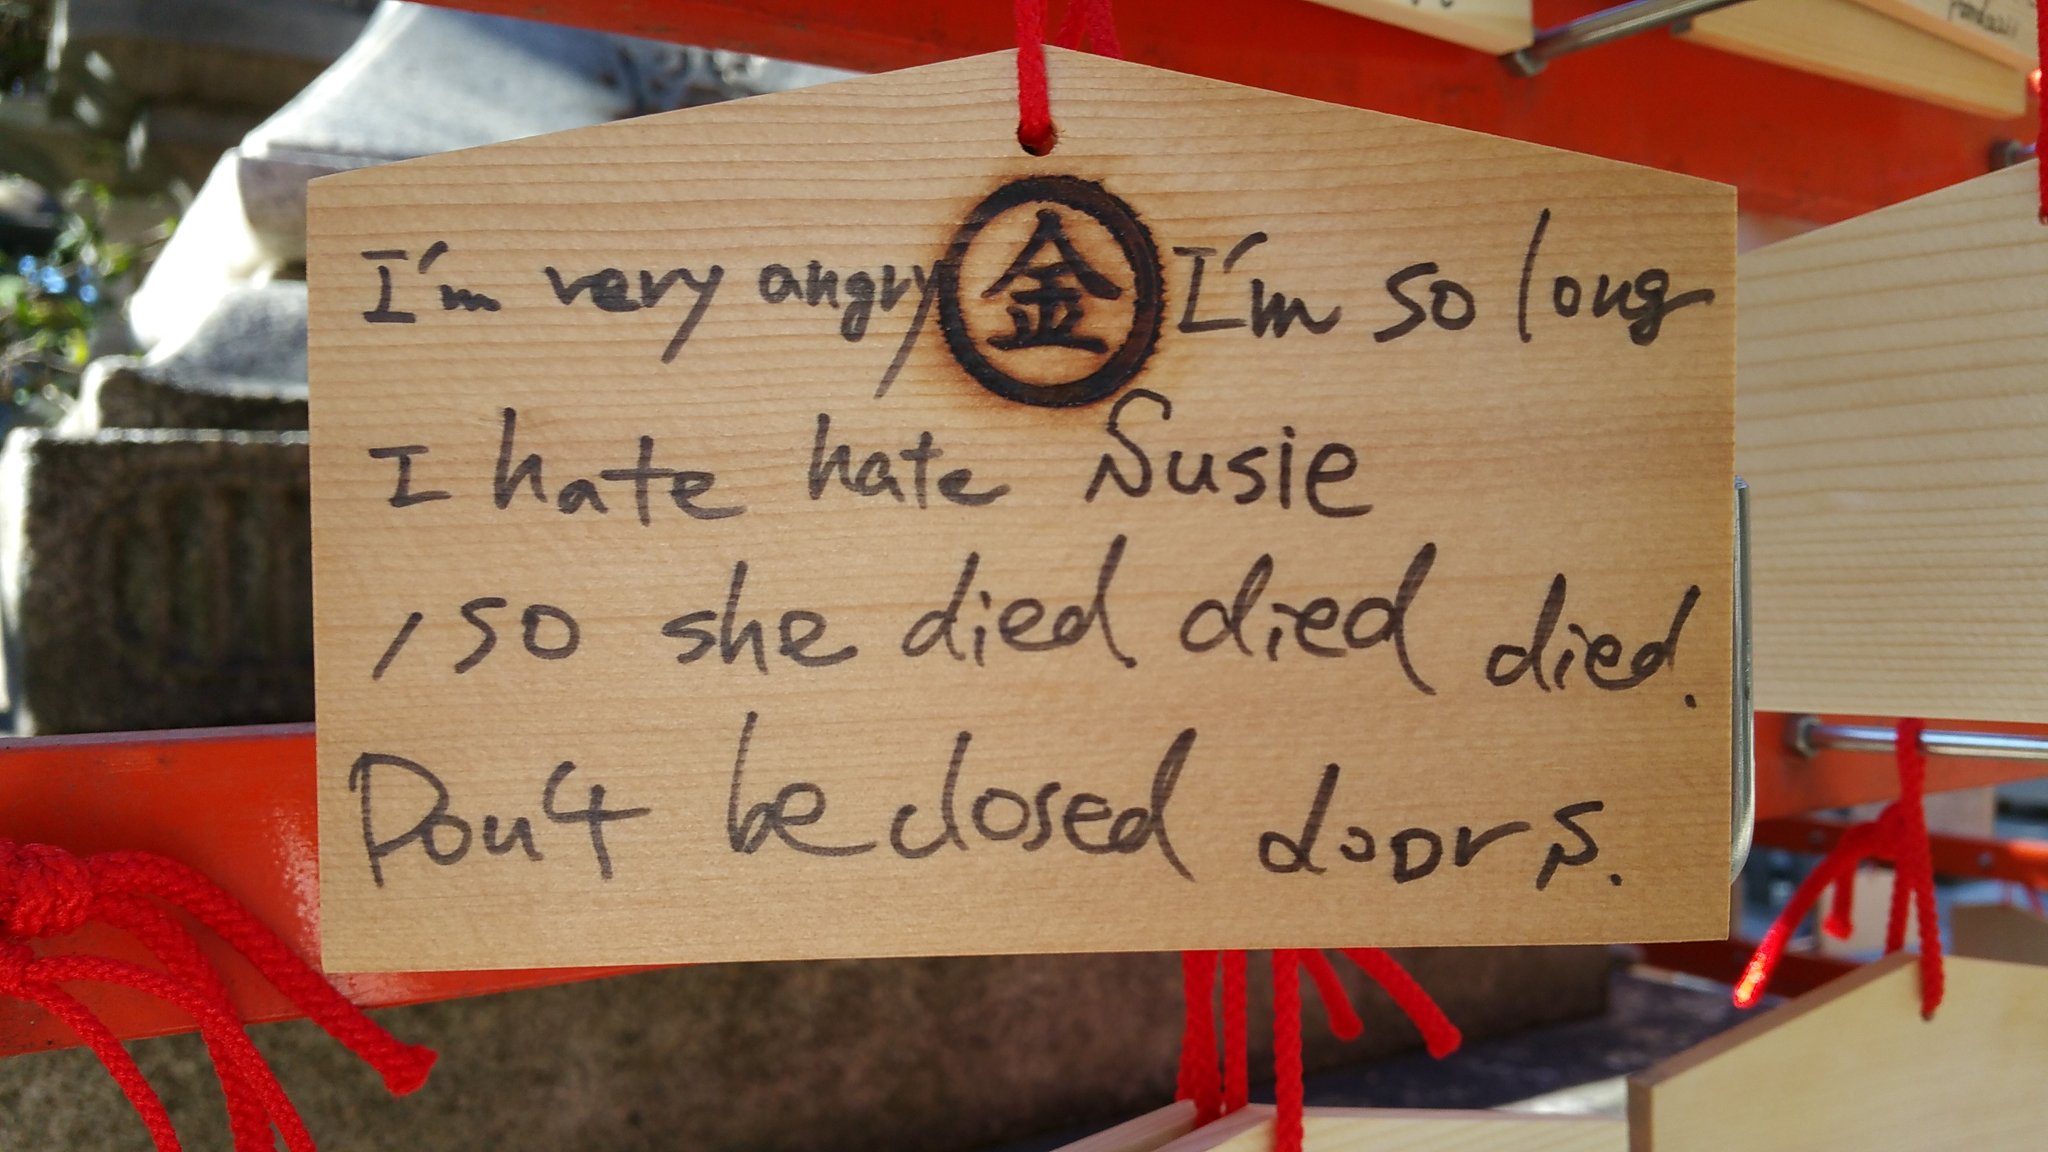 I'm very angry 金 I'm so long
I hate hate Susie
, so she died died died.
Don't be closed doors.